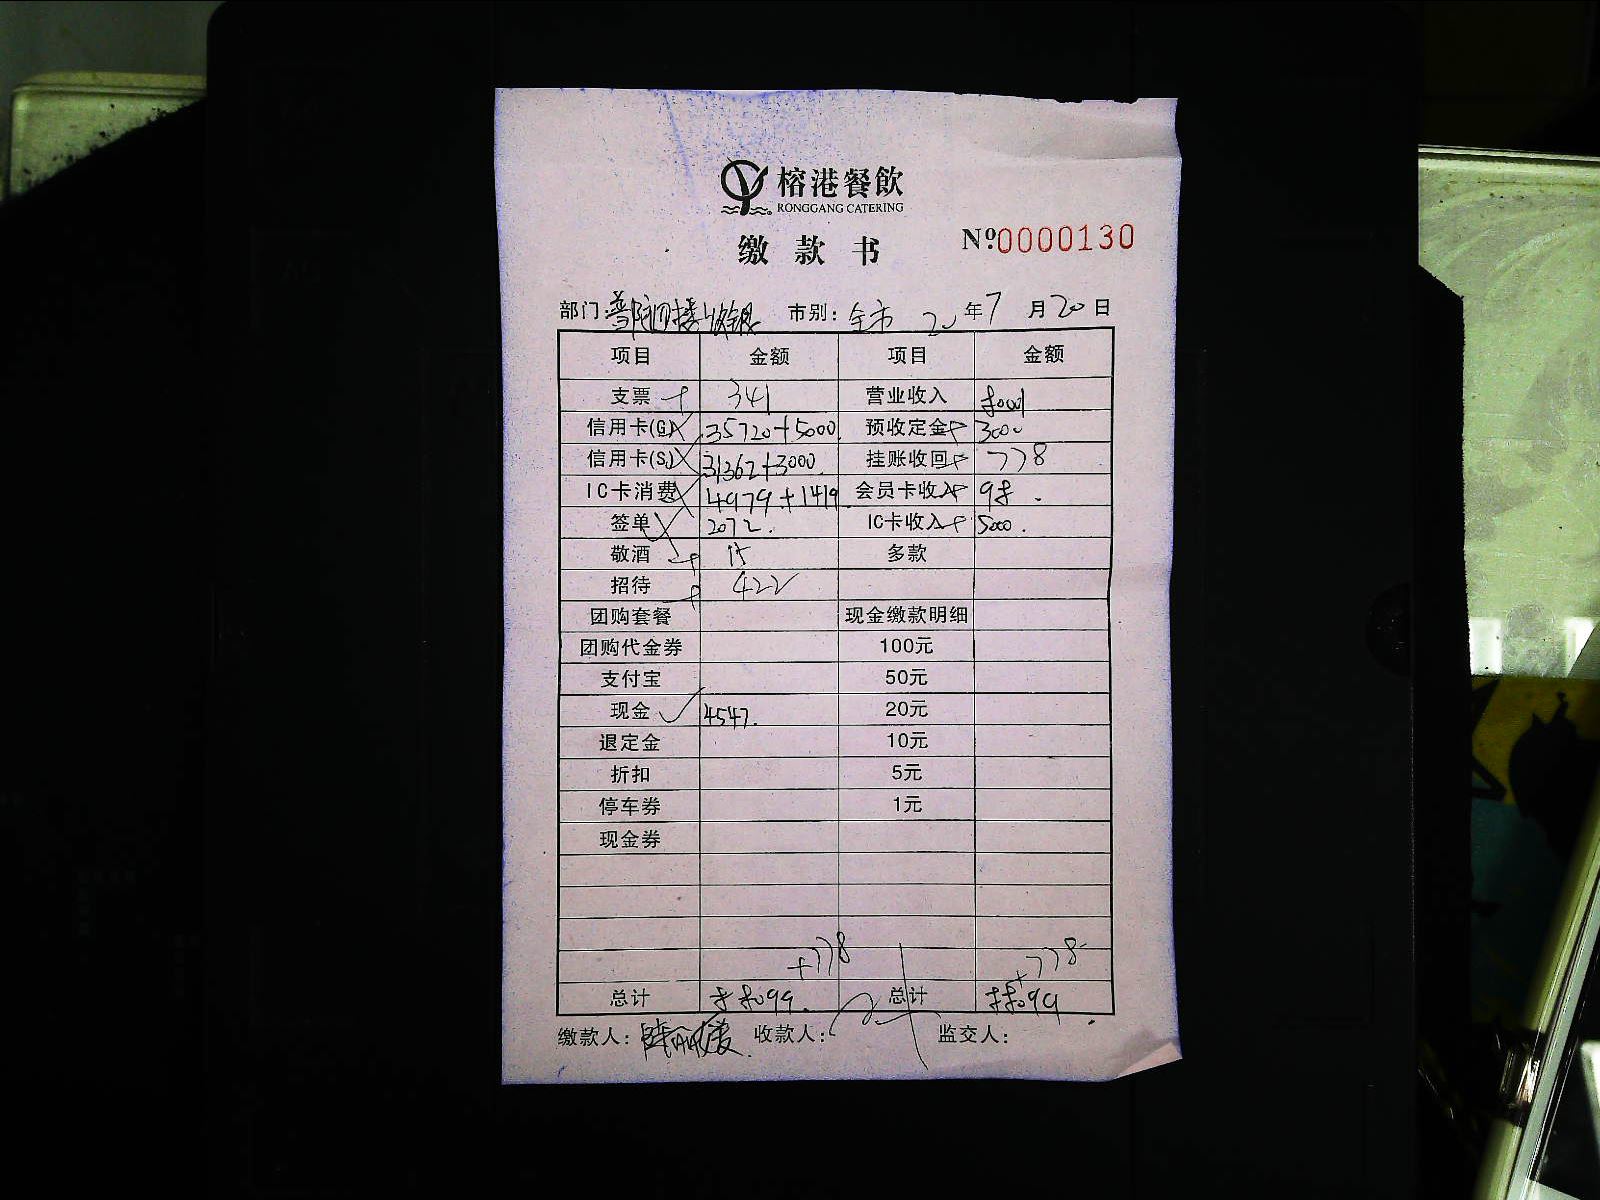 榕港餐飲
RONGGANG CATERING
缴款书 Nº0000130
部门: 市别: 全市 20 年 7 月 20 日
项目 金额 项目 金额
支票 341 营业收入
信用卡(G) 35720+5000 预收定金 3000
信用卡(S) 31362+3000. 挂账收回 778
IC卡消费 4979+1419. 会员卡收入
签单 2072. IC卡收入 5000.
敬酒 多款
招待 422
团购套餐 现金缴款明细
团购代金券 100元
支付宝 50元
现金 4547. 20元
退定金 10元
折扣 5元
停车券 1元
现金券
+778 +778
总计 总计
缴款人: 收款人: 监交人: